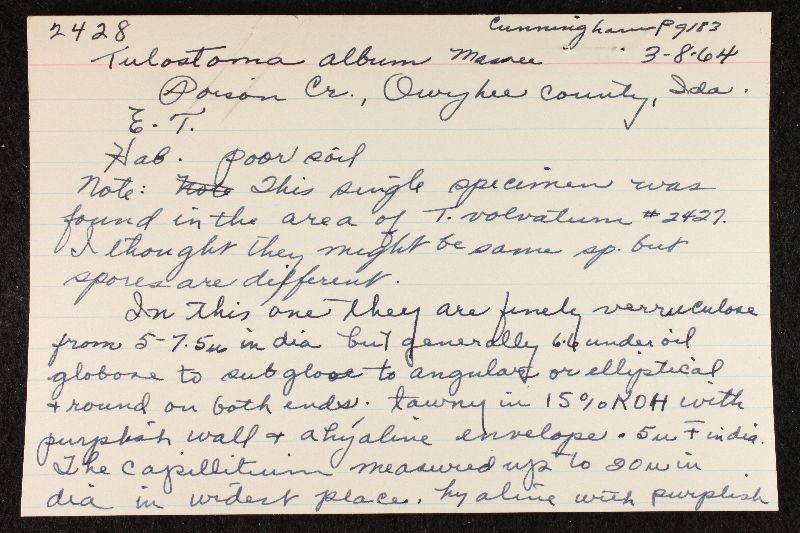 2428 Cunningham P 9183
Tulostoma album Massee 3-8-64
Poison Cr., Owyhee County, Ida.
E. T.
Hab. poor soil
Note: Note This single specimen was
found in the area of T. volvatum #2427.
I thought they might be same sp. but
spores are different.
In this one they are finely verruculose
from 5-7.5u in dia but generally 6.6 under oil
globose to subglose to angular or elliptical
+ round on both ends. tawny in 15% KOH with
purplish wall + a hyaline envelope .5u ∓ in dia.
The capillitium measured up to 20u in
dia in widest place. hyaline with purplish